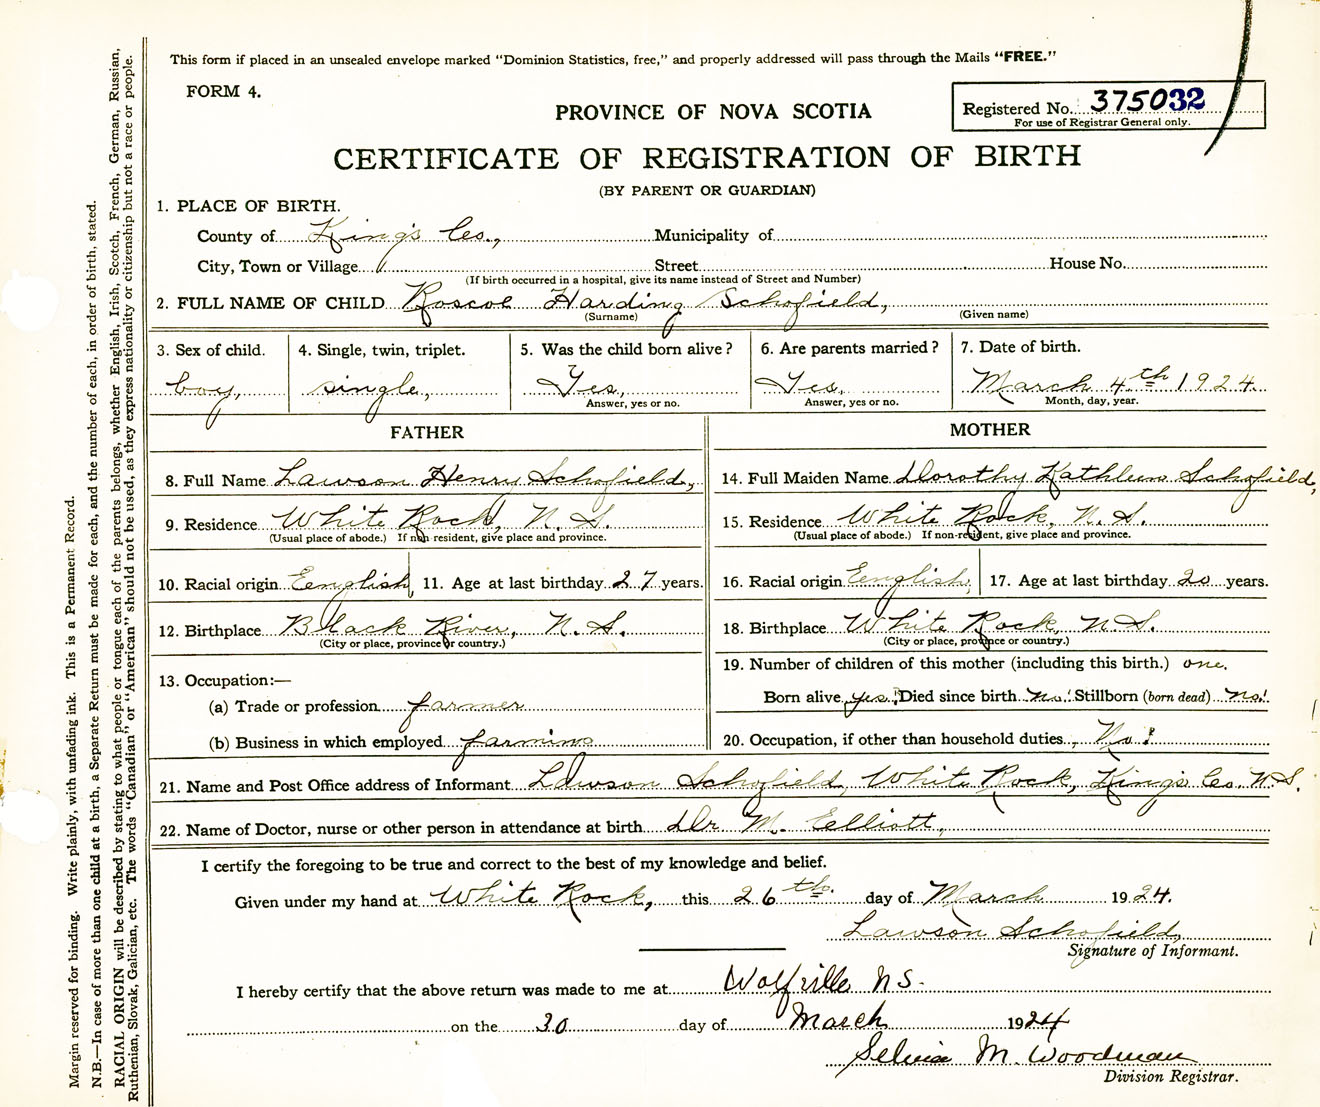 This form if placed in an unsealed envelope marked "Dominion Statistics, free," and properly addressed will pass through the Mails "FREE."
FORM 4.
PROVINCE OF NOVA SCOTIA
Registered No. 375032
For use of Registrar General only.
CERTIFICATE OF REGISTRATION OF BIRTH
(BY PARENT OR GUARDIAN)
1. PLACE OF BIRTH.
County of King's Co., Municipality of
City, Town or Village Street House No.
(If birth occurred in a hospital, give its name instead of Street and Number)
2. FULL NAME OF CHILD Roscoe Harding Schofield,
(Surname) (Given name)
3. Sex of child. 4. Single, twin, triplet. 5. Was the child born alive? 6. Are parents married? 7. Date of birth.
boy, single, Yes, Yes, March 4th 1924
Answer, yes or no. Answer, yes or no. Month, day, year.
FATHER
8. Full Name Lawson Henry Schofield,
9. Residence White Rock, N. S.
(Usual place of abode.) If non-resident, give place and province.
10. Racial origin Eenglish, 11. Age at last birthday 27 years.
12. Birthplace Black River, N. S.
(City or place, province or country.)
13. Occupation:—
(a) Trade or profession farmer
(b) Business in which employed farming
MOTHER
14. Full Maiden Name Dorothy Kathleen Schofield,
15. Residence White Rock, N. S.
(Usual place of abode.) If non-resident, give place and province.
16. Racial origin Eenglish, 17. Age at last birthday 20 years.
18. Birthplace White Rock, N. S.
(City or place, province or country.)
19. Number of children of this mother (including this birth.) one.
Born alive yes! Died since birth No! Stillborn (born dead) No!
20. Occupation, if other than household duties, No!
21. Name and Post Office address of Informant Lawson Schofield, White Rock, King's Co. N. S.
22. Name of Doctor, nurse or other person in attendance at birth Dr. M. Eelliott,
I certify the foregoing to be true and correct to the best of my knowledge and belief.
Given under my hand at White Rock, this 26th day of March 1924.
Lawson Schofield,
Signature of Informant.
I hereby certify that the above return was made to me at Wolfville N S.
on the 30 day of March 1924
Selvia M. Woodman
Division Registrar.
Margin reserved for binding. Write plainly, with unfading ink. This is a Permanent Record.
N.B.—In case of more than one child at a birth, a Separate Return must be made for each, and the number of each, in order of birth, stated.
RACIAL ORIGIN will be described by stating to what people or tongue each of the parents belongs, whether English, Irish, Scotch, French, German, Russian,
Ruthenian, Slovak, Galician, etc. The words "Canadian" or "American" should not be used, as they express nationality or citizenship but not a race or people.